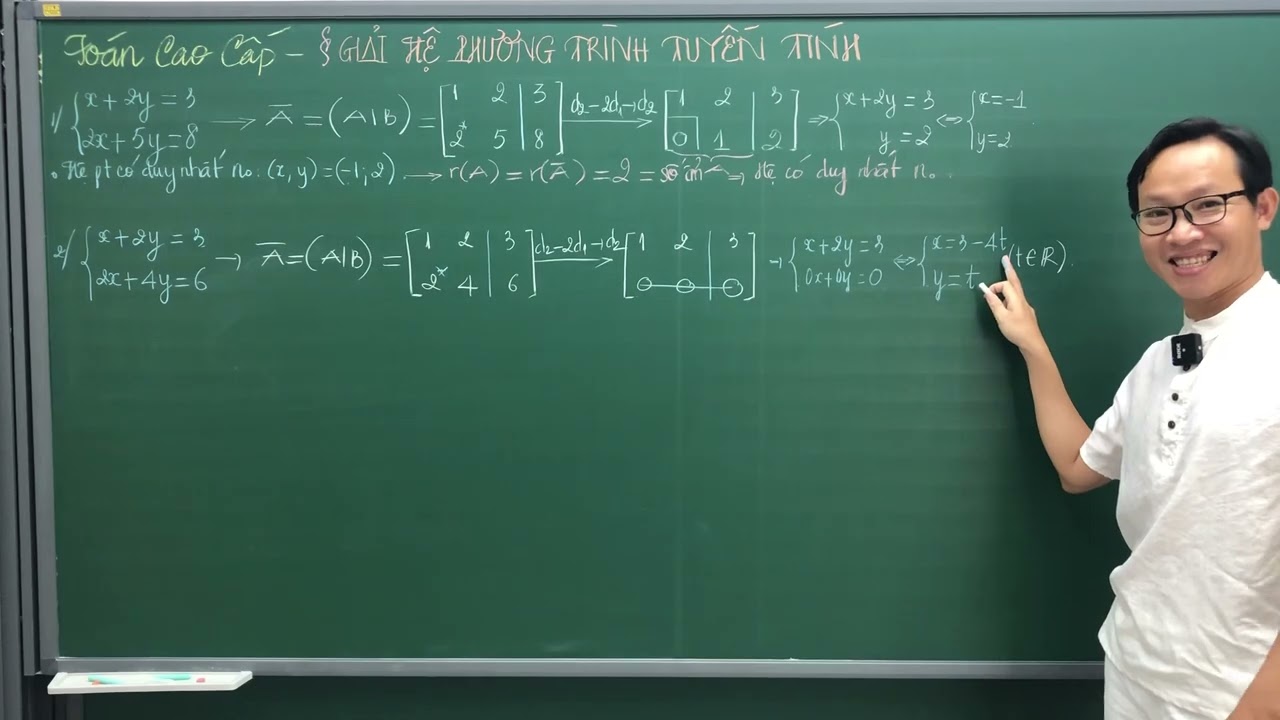 Toán Cao Cấp - § GIẢI HỆ PHƯƠNG TRÌNH TUYẾN TÍNH
1) { x + 2y = 3 ; 2x + 5y = 8 → A̅ = (A|B) = [ 1 2 | 3 ; 2* 5 | 8 ] d2 - 2d1 → d2 [ 1 2 | 3 ; 0 1 | 2 ] ⇒ { x + 2y = 3 ; y = 2 ⇔ { x = -1 ; y = 2
. Hệ pt có duy nhất no: (x, y) = (-1; 2) → r(A) = r(A̅) = 2 = số ẩn ⇒ Hệ có duy nhất no.
A
2) { x + 2y = 3 ; 2x + 4y = 6 → A̅ = (A|B) = [ 1 2 | 3 ; 2* 4 | 6 ] d2 - 2d1 → d2 [ 1 2 | 3 ; 0 0 | 0 ] → { x + 2y = 3 ; 0x + 0y = 0 ⇔ { x = 3 - 4t ; y = t (t ∈ R).